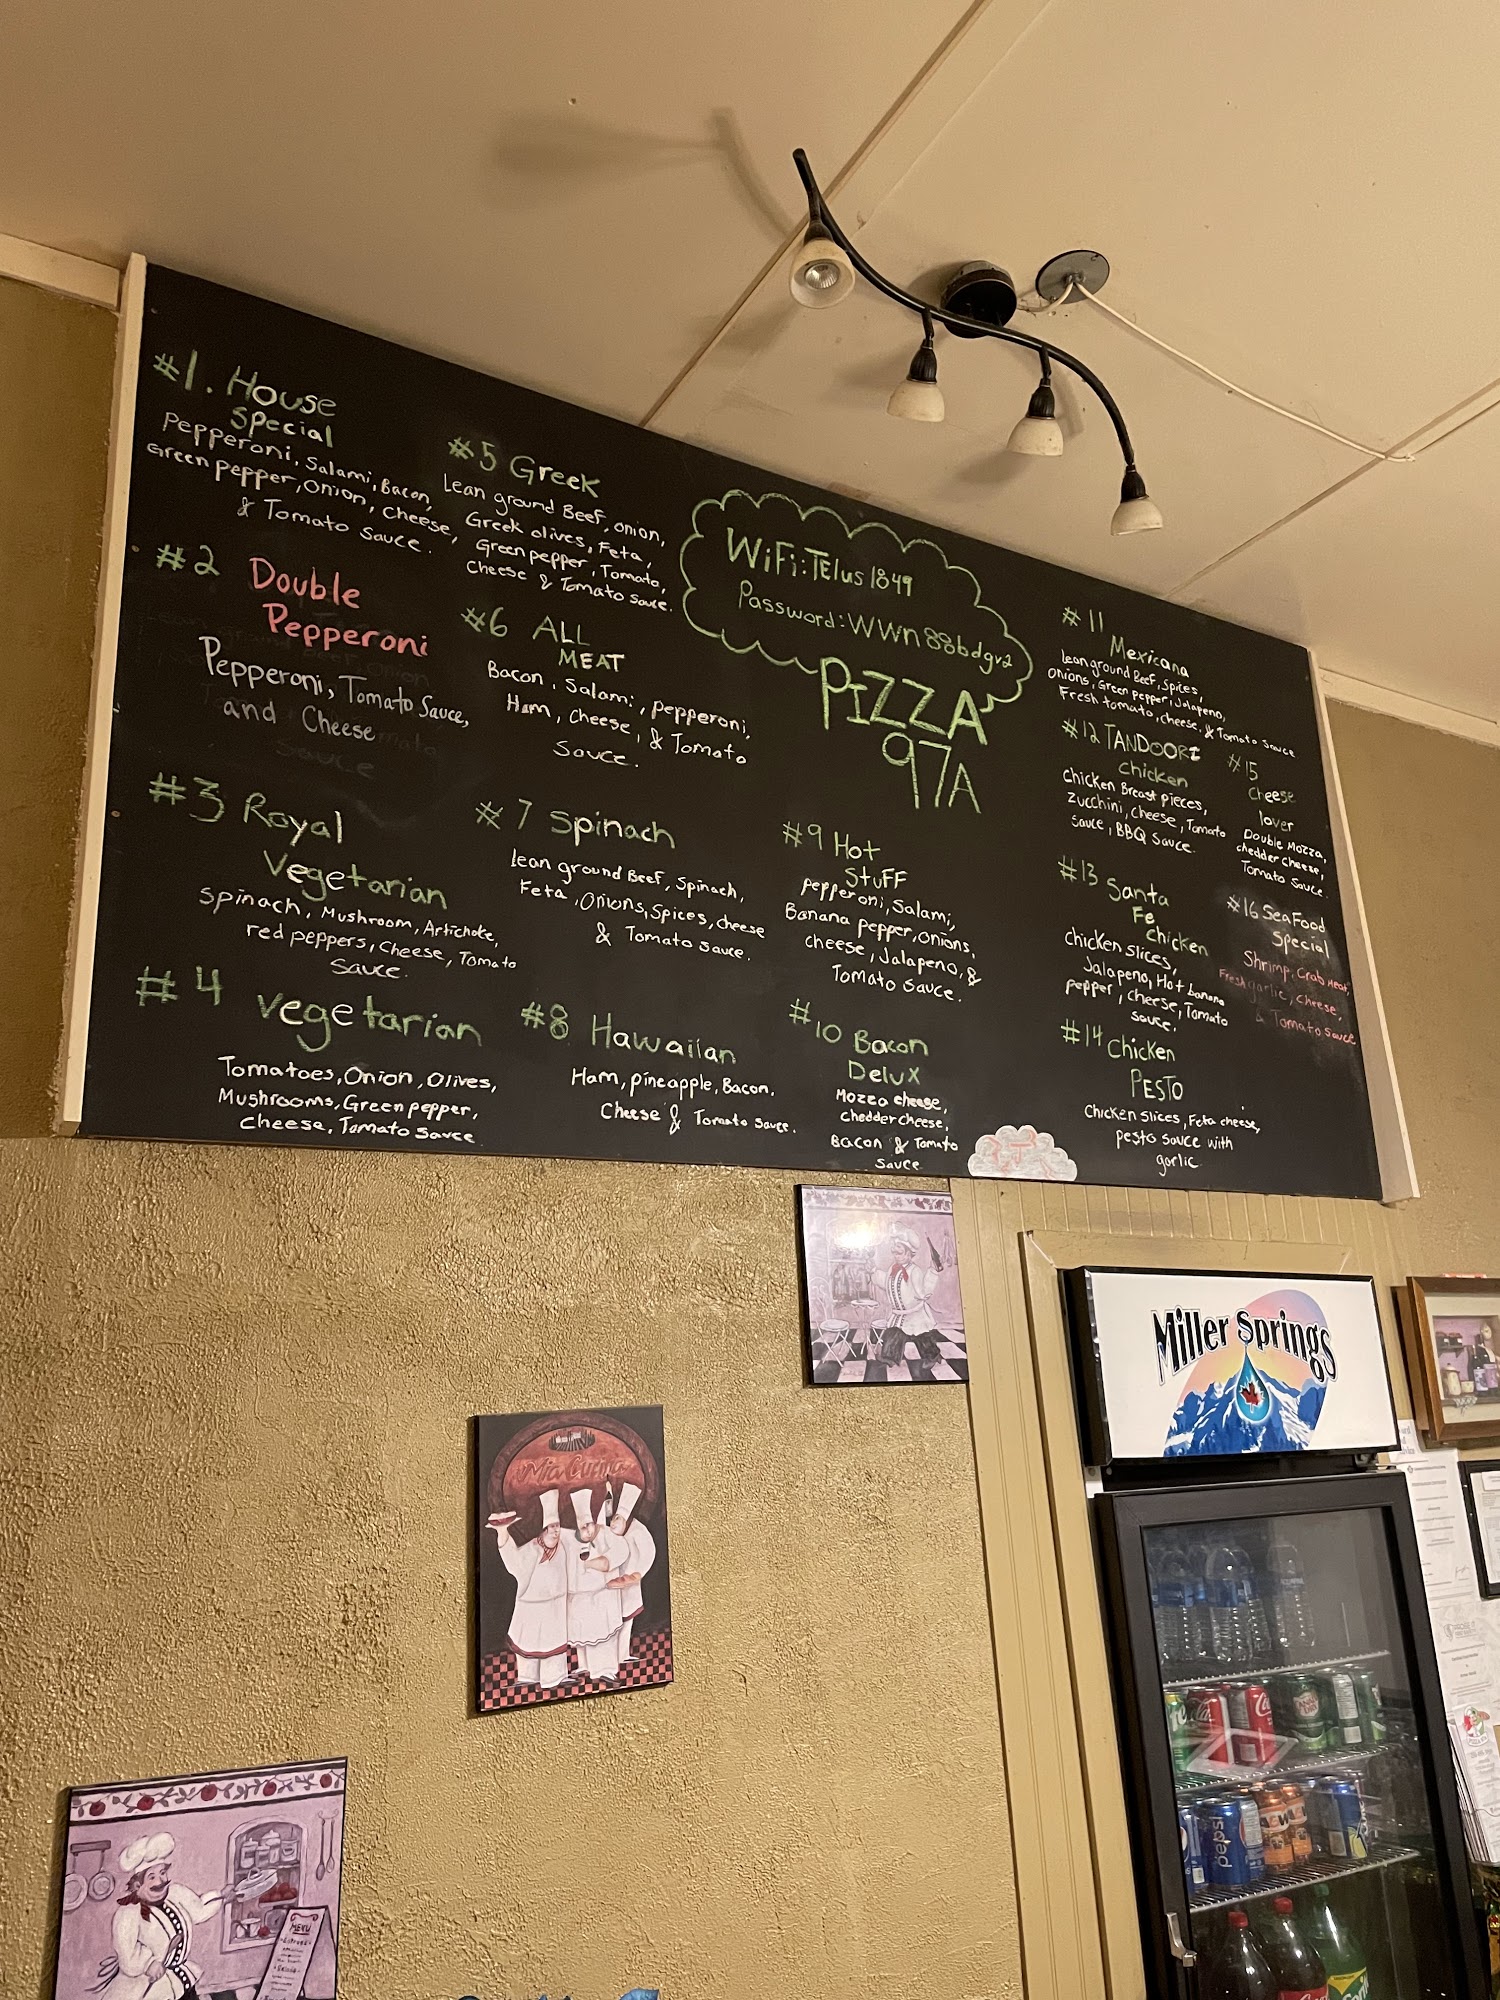 #1. House
Special
Pepperoni, Salami, Bacon,
Green pepper, Onion, Cheese,
& Tomato Sauce.
#2 Double
Pepperoni
Pepperoni, Tomato Sauce,
and Cheese
#3 Royal
Vegetarian
Spinach, Mushroom, Artichoke,
red peppers, Cheese, Tomato
Sauce.
#4 Vegetarian
Tomatoes, Onion, Olives,
Mushrooms, Green pepper,
Cheese, Tomato Sauce
#5 Greek
Lean ground Beef, onion,
Greek olives, Feta,
Green pepper, Tomato,
Cheese & Tomato sauce.
#6 ALL
MEAT
Bacon, Salami, pepperoni,
Ham, cheese, & Tomato
Sauce.
#7 Spinach
lean ground Beef, Spinach,
Feta, Onions, Spices, cheese
& Tomato sauce.
#8 Hawaiian
Ham, pineapple, Bacon,
Cheese & Tomato Sauce.
WiFi: TElus1849
Password: WWn88bdgv2
PIZZA
97A
#9 Hot
Stuff
pepperoni, Salami,
Banana pepper, onions,
cheese, Jalapeno, &
Tomato Sauce.
#10 Bacon
Delux
Mozza cheese,
chedder cheese,
Bacon & Tomato
Sauce
#11
Mexicana
lean ground Beef, Spices,
Onions, Green pepper, Jalapeno,
Fresh tomato, cheese, & Tomato Sauce
#12 TANDOORI
Chicken
Chicken Breast pieces,
Zucchini, Cheese, Tomato
Sauce, BBQ Sauce.
#13 Santa
Fe
Chicken
Chicken slices,
Jalapeno, Hot banana
pepper, Cheese, Tomato
Sauce.
#14 Chicken
PESTO
Chicken Slices, Feta cheese,
pesto sauce with
garlic
#15
Cheese
lover
Double Mozza,
chedder cheese,
Tomato Sauce.
#16 SeaFood
Special
Shrimp, Crab Meat,
Fresh garlic, Cheese,
& Tomato sauce
Miller Springs
Mia Cucina
MENU
pepsi